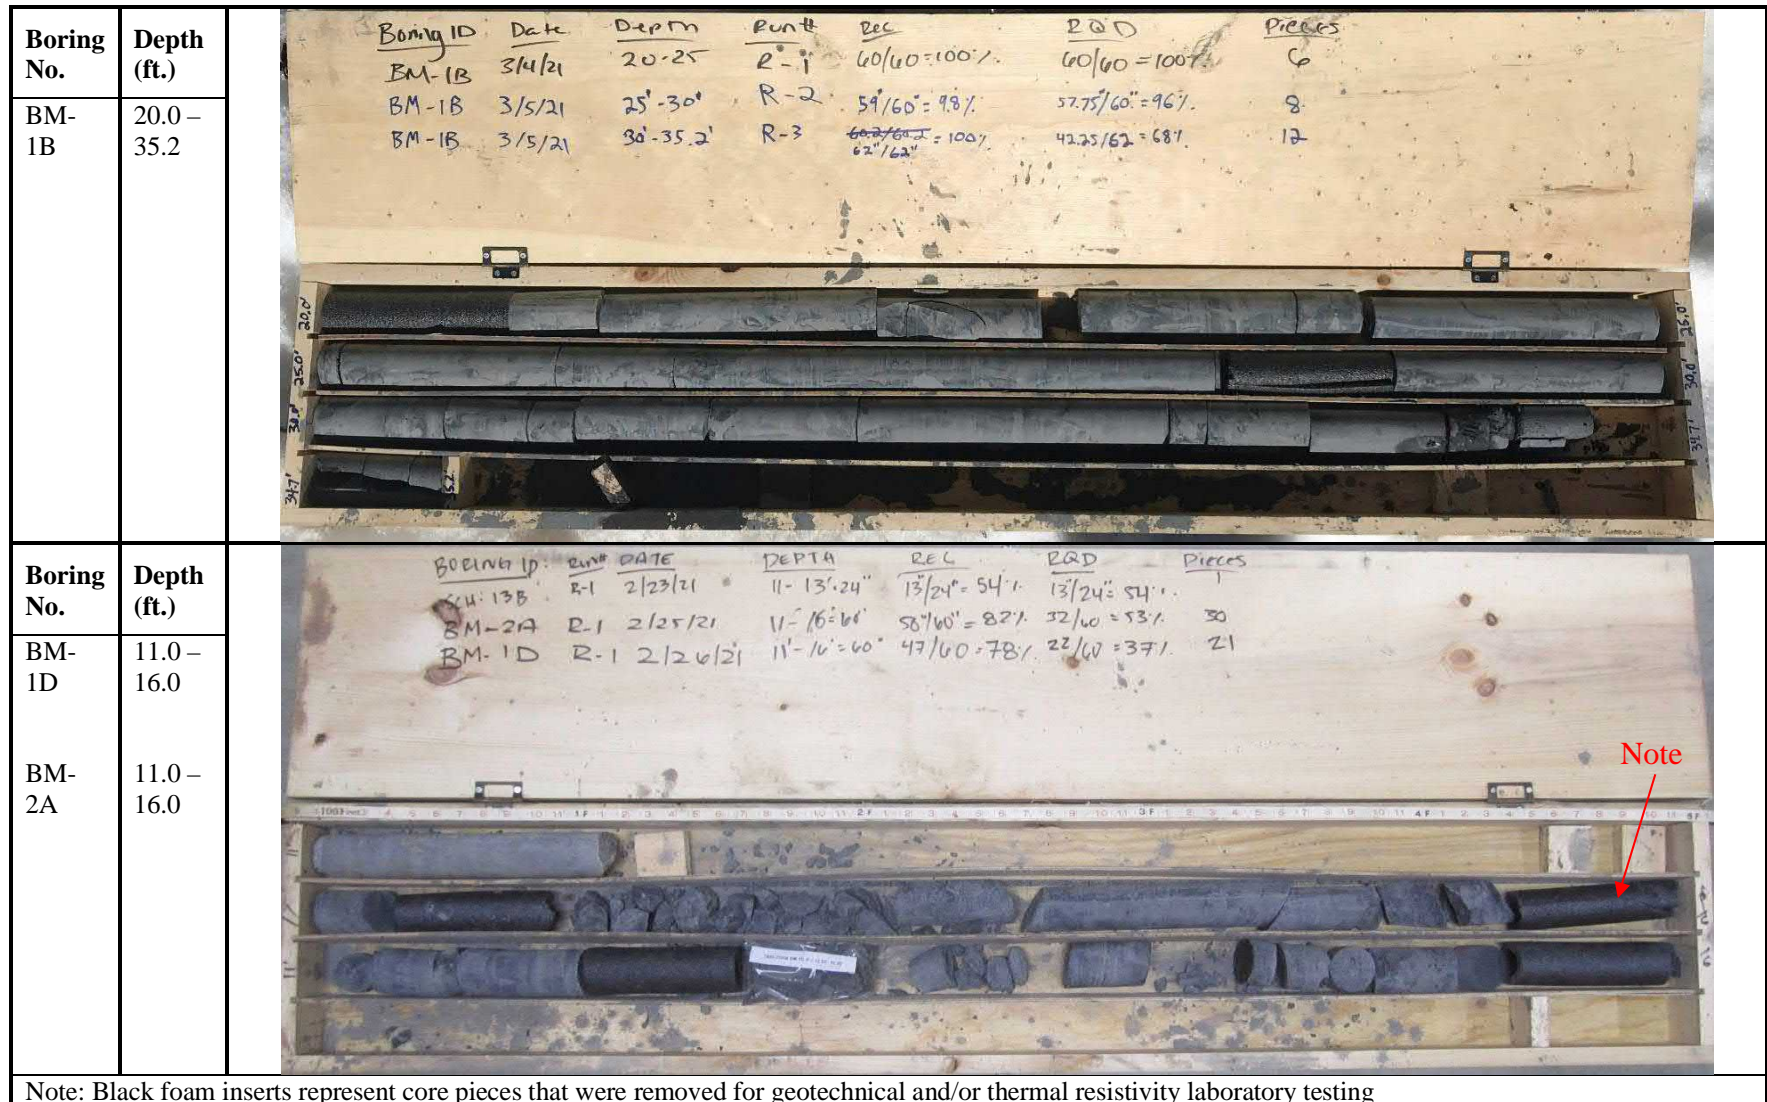 Boring No.
Depth (ft.)
BM-1B
20.0 – 35.2
Boring ID Date Depth Run# Rec RQD Pieces
BM-1B 3/4/21 20-25 R-1 60/60=100% 60/60=100% 6
BM-1B 3/5/21 25'-30' R-2 59"/60"=98% 57.75"/60"=96% 8
BM-1B 3/5/21 30'-35.2' R-3 60.2/60.2 =100% 42.25/62=68% 12
62"/62"
20.0' 25.0'
25.0' 30.0'
30.0' 34.7'
34.7' 35.2
Boring No.
Depth (ft.)
BM-1D
11.0 – 16.0
BM-2A
11.0 – 16.0
BORING ID: Run# DATE DEPTH REC RQD Pieces
SCH-13B R-1 2/23/21 11-13'=24" 13"/24"=54% 13"/24"=54% 1
BM-2A R-1 2/25/21 11-16=60" /60"=82% 32/60=53% 30
BM-1D R-1 2/26/21 11'-16'=60" 47/60=78% 22/60=37% 21
Note
11'
11
Note: Black foam inserts represent core pieces that were removed for geotechnical and/or thermal resistivity laboratory testing